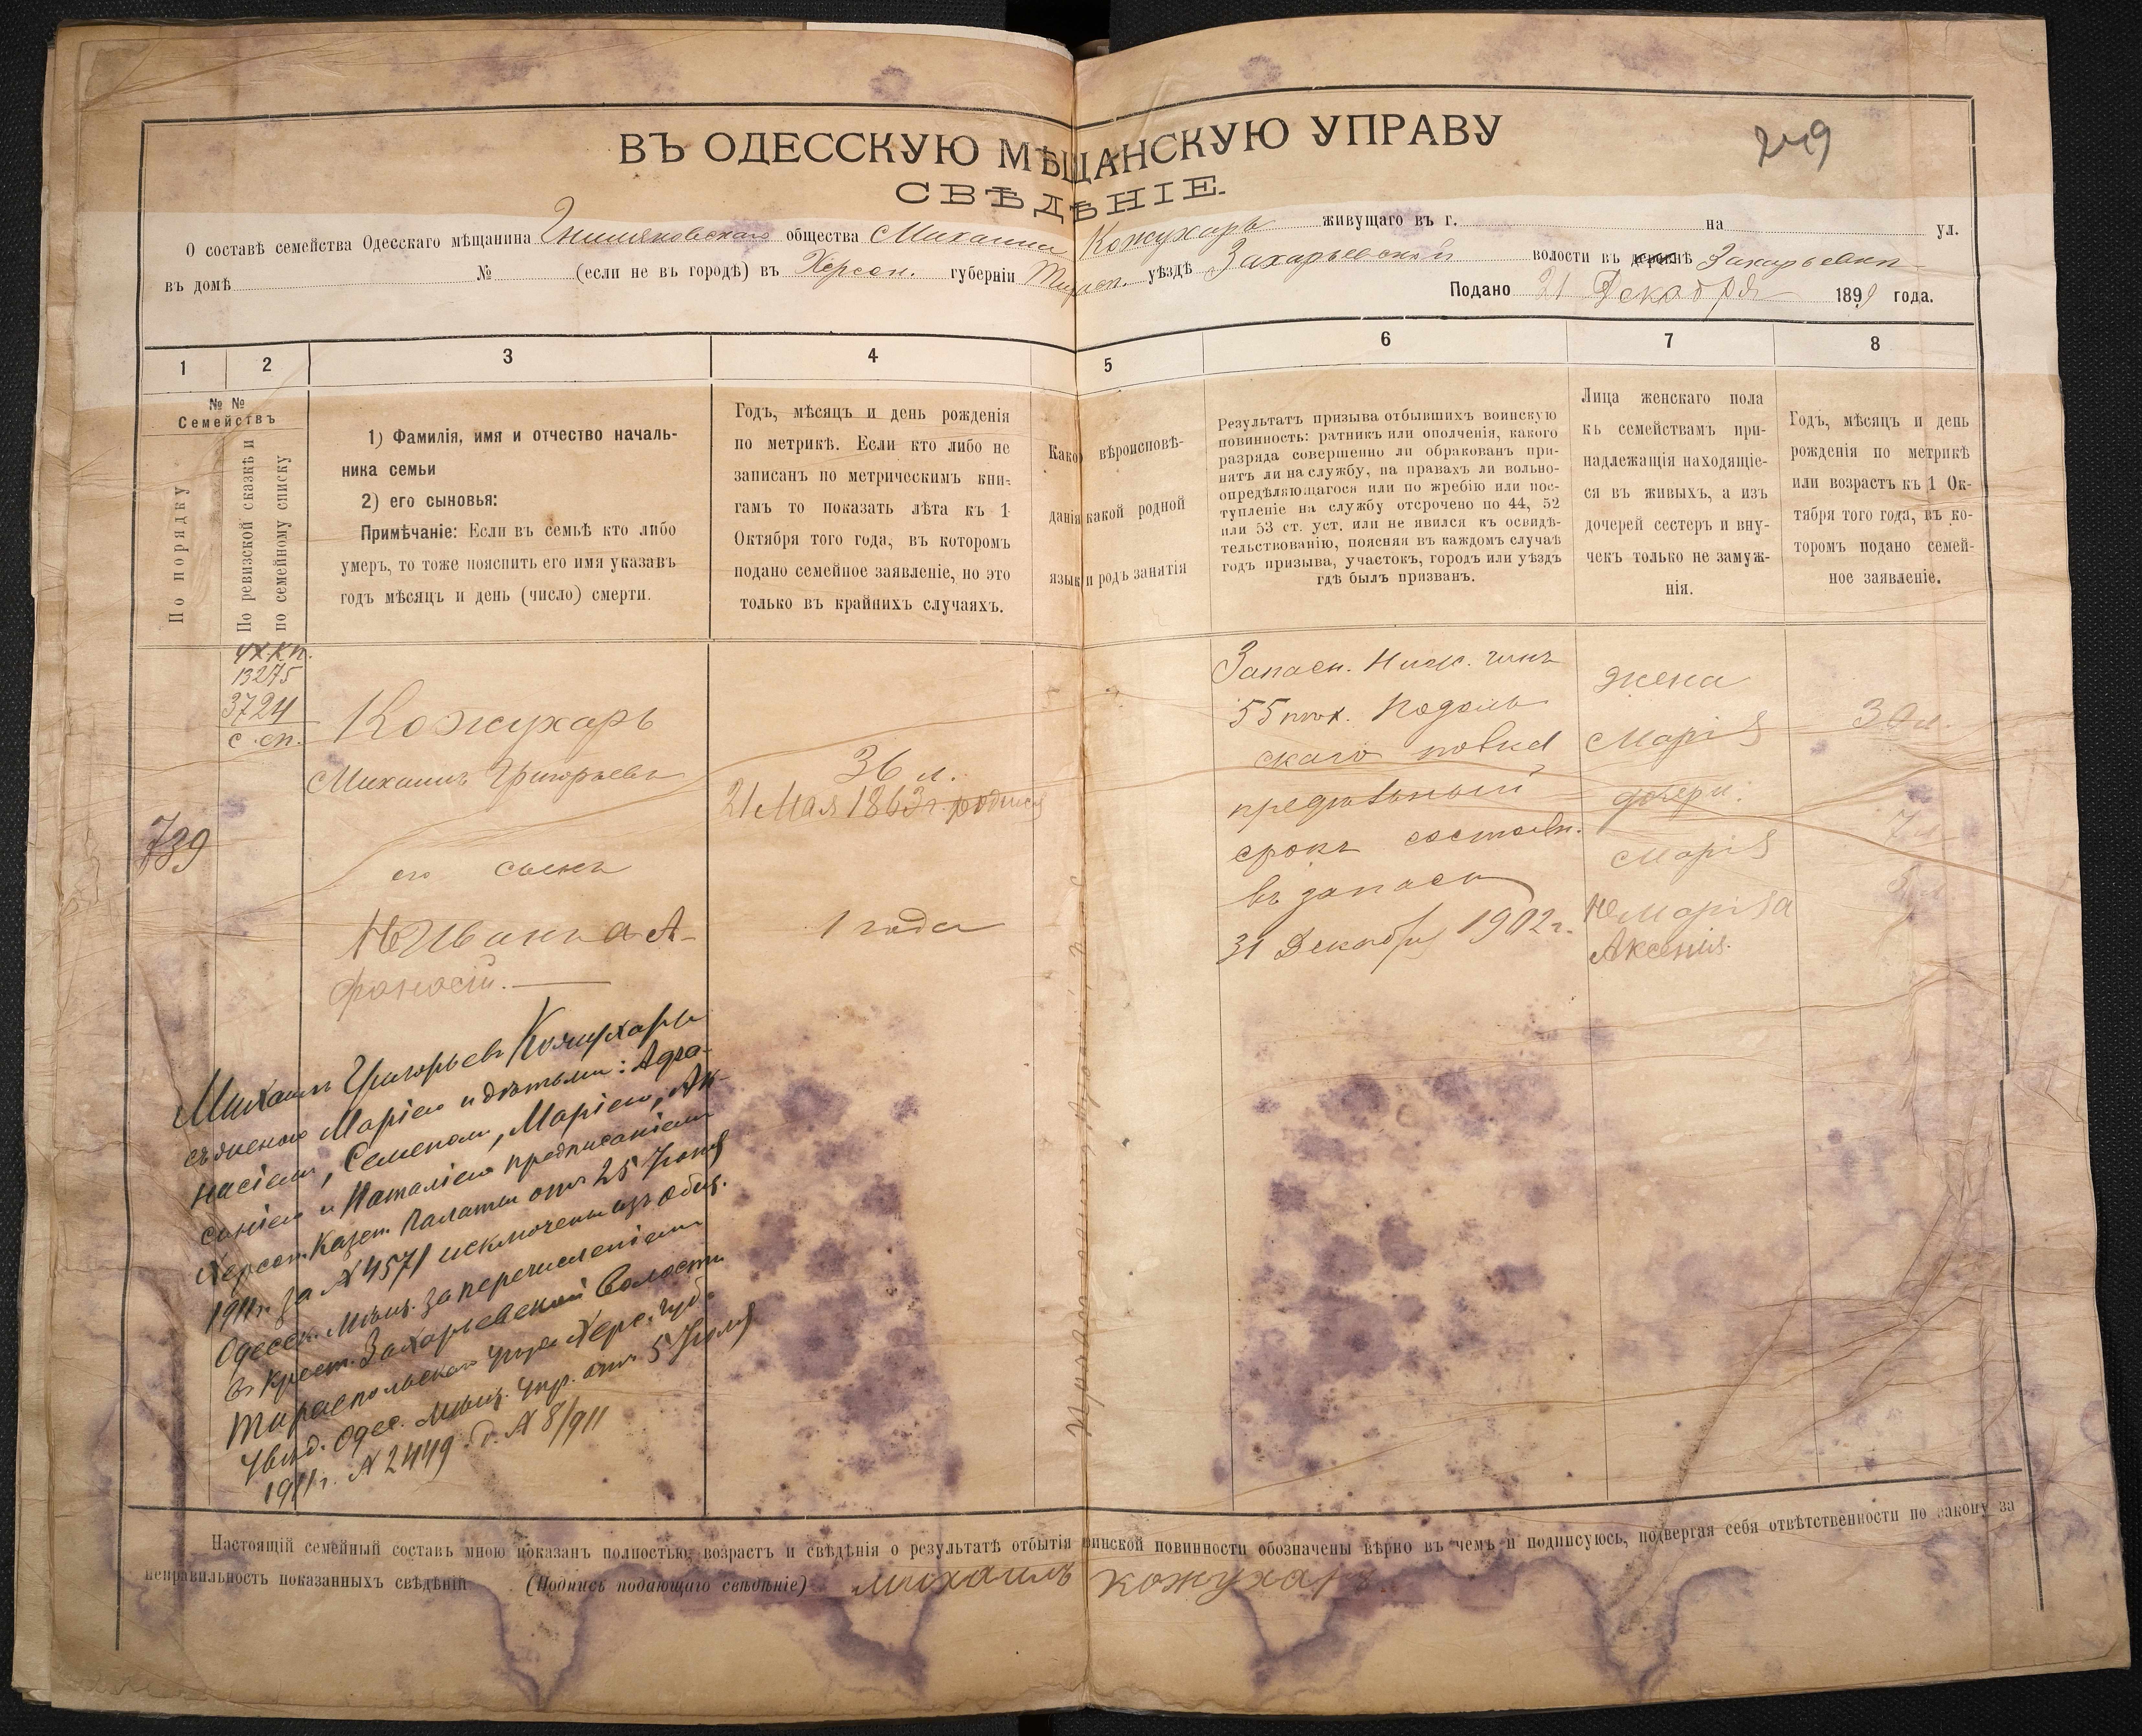 249
ВЪ ОДЕССКУЮ МѢЩАНСКУЮ УПРАВУ
СВѢДѢНІЕ.
О составѣ семейства Одесскаго мѣщанина Гниляковскаго общества Михаила Кожухарь живущаго въ г. на ул.
въ домѣ № (если не въ городѣ) въ Херсон. губерніи Тирасп. уѣздѣ Захарьевской волости въ Захарьевкѣ
Подано 21 Декабря 1899 года.
1 2 3 4 5 6 7 8
№ №
Семействъ
По порядку
По ревизской сказкѣ и
по семейному списку
1) Фамилія, имя и отчество началь-
ника семьи
2) его сыновья:
Примѣчаніе: Если въ семьѣ кто либо
умеръ, то тоже пояснить его имя указавъ
годъ мѣсяцъ и день (число) смерти.
Годъ, мѣсяцъ и день рожденія
по метрикѣ. Если кто либо не
записанъ по метрическимъ кни-
гамъ то показать лѣта къ 1
Октября того года, въ которомъ
подано семейное заявленіе, но это
только въ крайнихъ случаяхъ.
Како вѣроисповѣ-
данія какой родной
языкъ и родъ занятія
Результатъ призыва отбывшихъ воинскую
повинность: ратникъ или ополченія, какого
разряда совершенно ли обракованъ при-
нятъ ли на службу, на правахъ ли вольно-
опредѣляющагося или по жребію или пос-
тупленіе на службу отсрочено по 44, 52
или 53 ст. уст. или не явился къ освидѣ-
тельствованію, поясняя въ каждомъ случаѣ
годъ призыва, участокъ, городъ или уѣздъ
гдѣ былъ призванъ.
Лица женскаго пола
къ семействамъ при-
надлежащія находящіе-
ся въ живыхъ, а изъ
дочерей сестеръ и вну-
чекъ только не замуж-
нія.
Годъ, мѣсяцъ и день
рожденія по метрикѣ
или возрастъ къ 1 Ок-
тября того года, въ ко-
торомъ подано семей-
ное заявленіе.
13275
3724
с. сп.
739
Кожухарь
Михаилъ Григорьевъ
его сынъ
Не Иванъ а А-
фанасій.
36 л.
21 Мая 1863 г. родился
1 года
Запасн. Ниж. чинъ
55 пѣх. Подоль
скаго полка
предѣльный
срокъ состоян.
въ запасѣ
31 Декабря 1902 г.
жена
Марія
дочери:
Марія
не Марія а
Аксенія.
30 л.
7 л
5 л
Михаилъ Григорьевъ Кожухарь
съ женою Маріею и дѣтьми: Афа-
насіемъ, Семеномъ, Маріею, Ак-
сеніею и Наталіею предписаніемъ
Херсон. Казен. Палаты отъ 25 Іюня
1911 г. за № 4571 исключены изъ общ.
Одесск. Мѣщ. за перечисленіемъ
въ крест. Захарьевской Волости
Тираспольскаго уѣзда Херс. губ.
Увѣд. Одес. Мѣщ. Упр. отъ 5 Іюля
1911 г. № 2449. д. № 8/911
Настоящій семейный составъ мною показанъ полностью, возрастъ и свѣдѣнія о результатѣ отбытія инской повинности обозначены вѣрно въ чемъ и подписуюсь, подвергая себя отвѣтственности по закону за
неправильность показанныхъ свѣдѣній (Подпись подающаго свѣдѣніе) михаилъ кожухарь